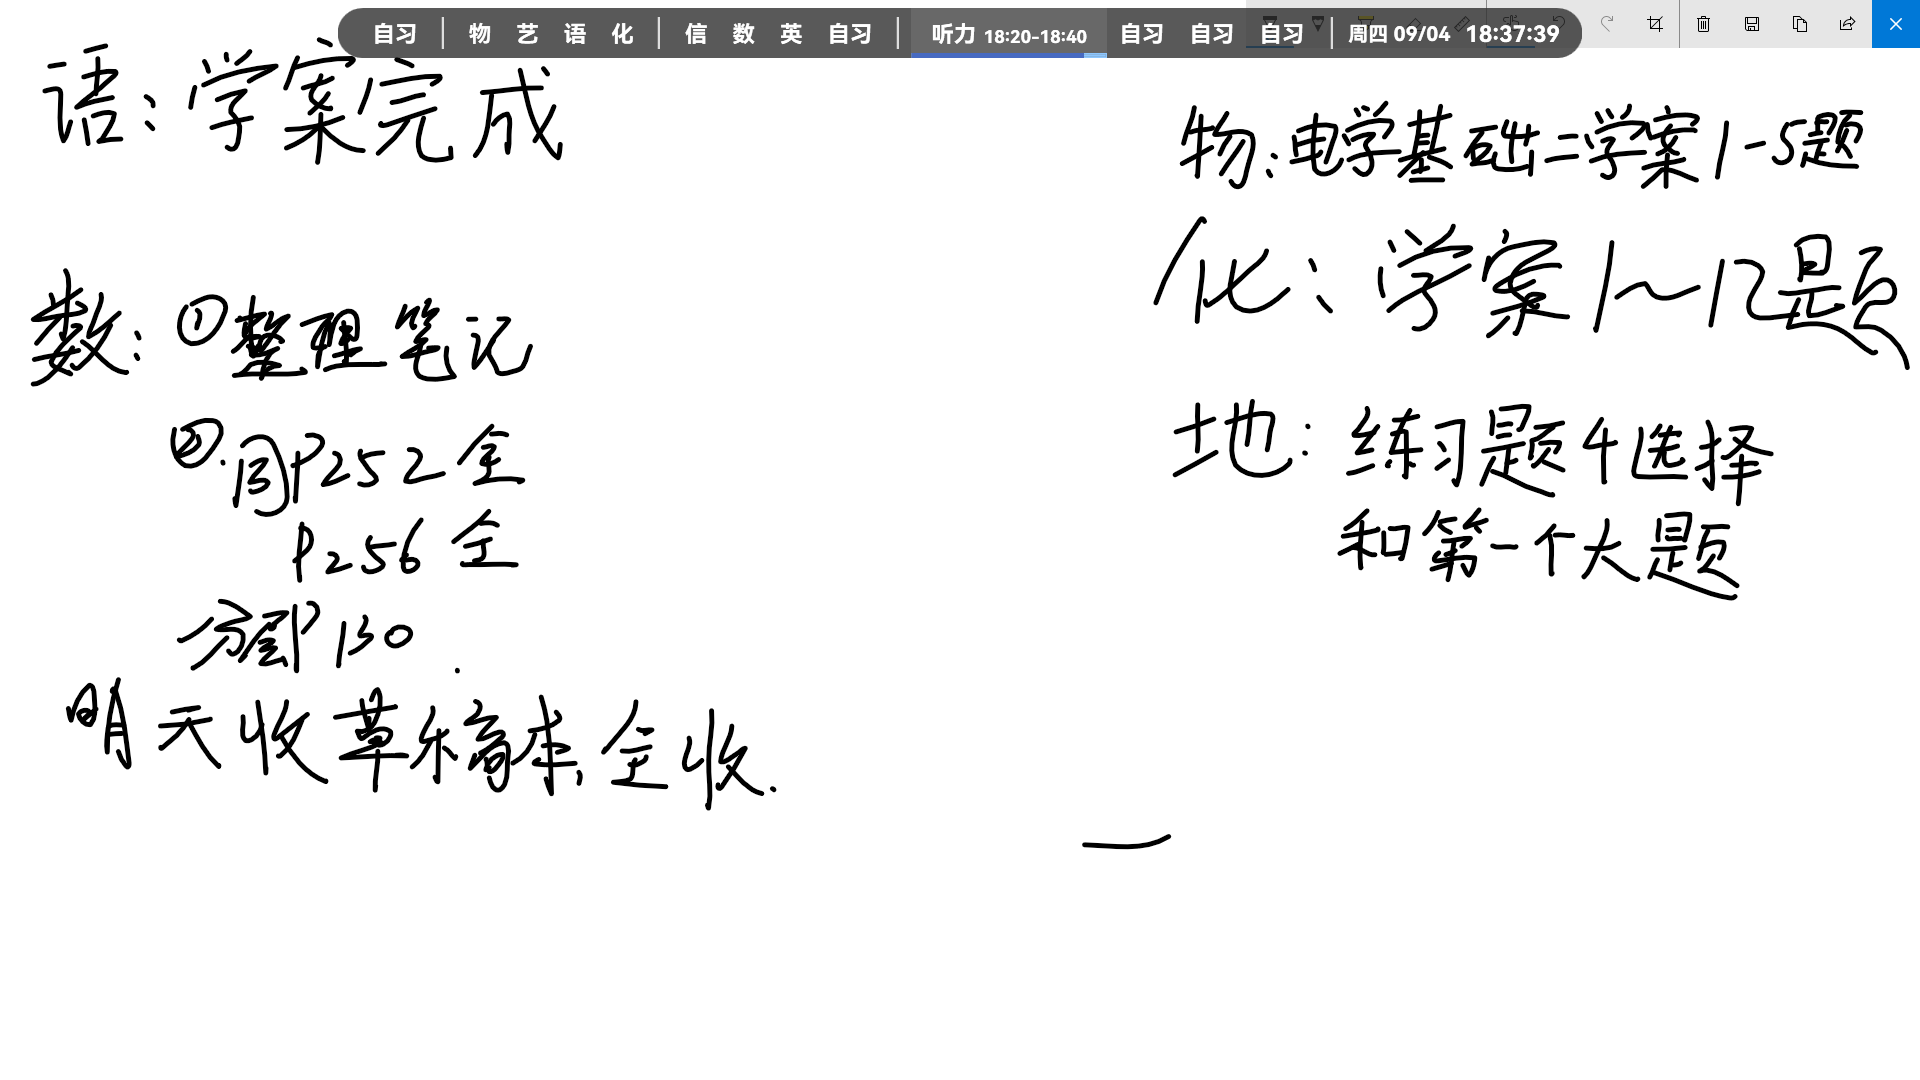 自习 | 物 艺 语 化 | 信 数 英 自习 | 听力 18:20-18:40 自习 自习 自习 | 周四 09/04 18:37:39
语：学案完成
数：①整理笔记
②.同P252全
P256全
分层P130
明天收草稿本，全收.
物：电学基础二学案1-5题
化：学案1～12题
地：练习题4选择
和第一个大题